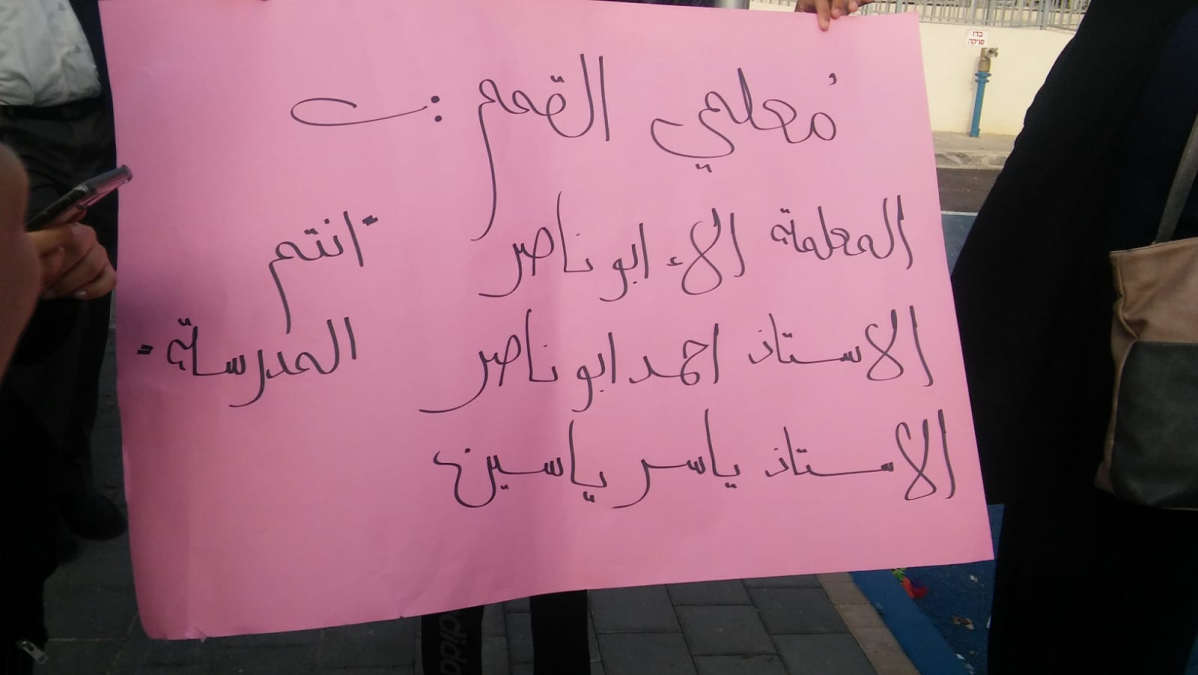 مُعلمي القمم :
المعلمة الاء ابو ناصر
الاستاذ احمد ابو ناصر
الاستاذ ياسر ياسين
"انتم
المدرسة"
ברז
סניקה